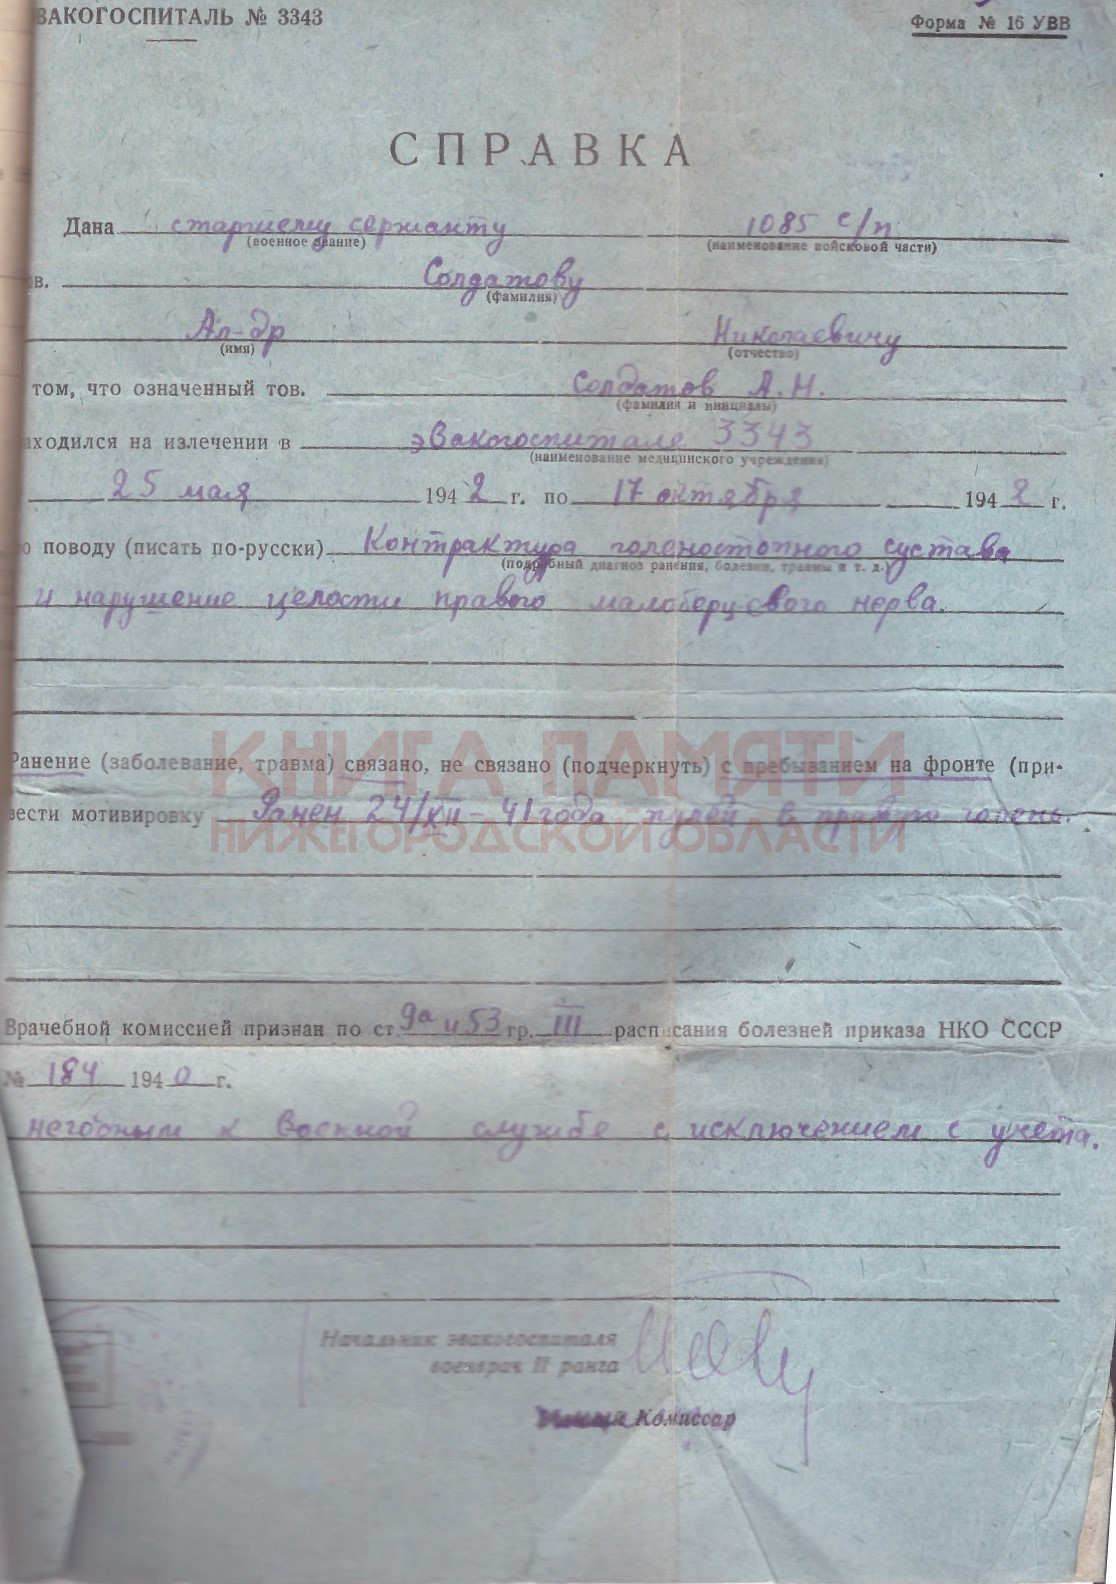 ВАКОГОСПИТАЛЬ № 3343
Форма № 16 УВВ
СПРАВКА
Дана старшему сержанту 1085 с/п
(военное звание) (наименование войсковой части)
ов. Солдатову
(фамилия)
Ал-др Николаевичу
(имя) (отчество)
том, что означенный тов. Солдатов А.Н.
(фамилия и инициалы)
аходился на излечении в эвакогоспитале 3343
(наименование медицинского учреждения)
25 мая 1942 г. по 17 октября 1942 г.
о поводу (писать по-русски) Контрактура голеностопного сустава
(подробный диагноз ранения, болезни, травмы и т. д.)
и нарушение целости правого малоберцового нерва.
КНИГА ПАМЯТИ
Ранение (заболевание, травма) связано, не связано (подчеркнуть) с пребыванием на фронте (при-
вести мотивировку Ранен 24/XII-41 года пулей в правую голень.
НИЖЕГОРОДСКОЙ ОБЛАСТИ
Врачебной комиссией признан по ст 9а и 53 гр. III расписания болезней приказа НКО СССР
№ 184 1940 г.
негодным к военной службе с исключением с учета.
Начальник эвакогоспиталя
военврач II ранга
Комиссар